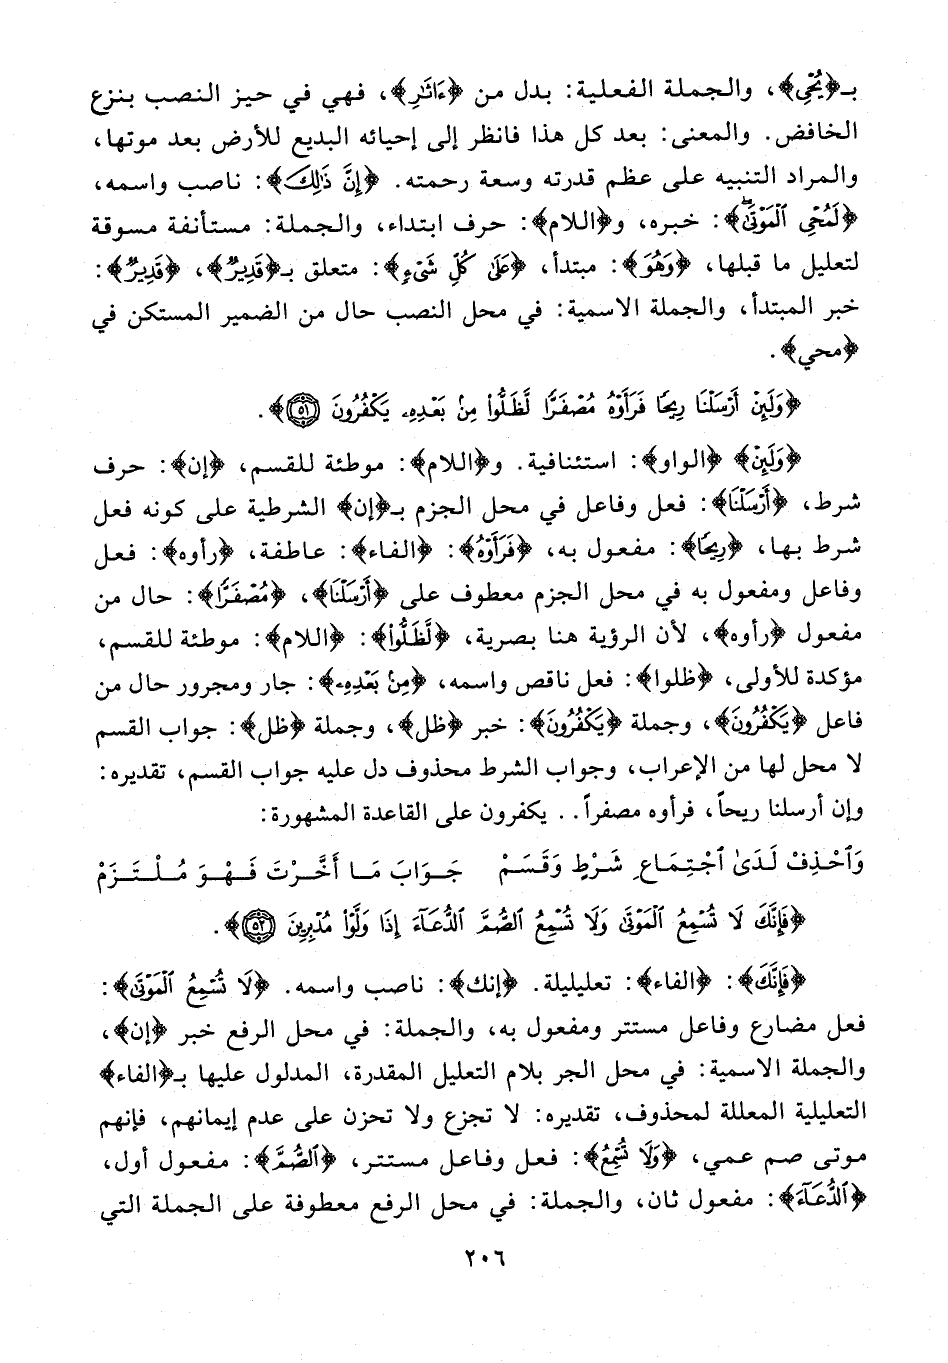 بـ﴿يُحْيِ﴾، والجملة الفعلية: بدل من ﴿ءَاثَٰرِ﴾، فهي في حيز النصب بنزع
الخافض. والمعنى: بعد كل هذا فانظر إلى إحيائه البديع للأرض بعد موتها،
والمراد التنبيه على عظم قدرته وسعة رحمته. ﴿إِنَّ ذَٰلِكَ﴾: ناصب واسمه،
﴿لَمُحْيِ ٱلْمَوْتَىٰ ۖ﴾: خبره، و﴿اللام﴾: حرف ابتداء، والجملة: مستأنفة مسوقة
لتعليل ما قبلها، ﴿وَهُوَ﴾: مبتدأ، ﴿عَلَىٰ كُلِّ شَىْءٍ﴾: متعلق بـ﴿قَدِيرٌ﴾، ﴿قَدِيرٌ﴾:
خبر المبتدأ، والجملة الاسمية: في محل النصب حال من الضمير المستكن في
﴿محي﴾.
﴿وَلَئِنْ أَرْسَلْنَا رِيحًا فَرَأَوْهُ مُصْفَرًّا لَّظَلُّوا۟ مِنۢ بَعْدِهِۦ يَكْفُرُونَ ٥١﴾.
﴿وَلَئِنْ﴾ ﴿الواو﴾: استئنافية. و﴿اللام﴾: موطئة للقسم، ﴿إن﴾: حرف
شرط، ﴿أَرْسَلْنَا﴾: فعل وفاعل في محل الجزم بـ﴿إن﴾ الشرطية على كونه فعل
شرط بها، ﴿رِيحًا﴾: مفعول به، ﴿فَرَأَوْهُ﴾: ﴿الفاء﴾: عاطفة، ﴿رأوه﴾: فعل
وفاعل ومفعول به في محل الجزم معطوف على ﴿أَرْسَلْنَا﴾، ﴿مُصْفَرًّا﴾: حال من
مفعول ﴿رأوه﴾، لأن الرؤية هنا بصرية، ﴿لَّظَلُّوا۟﴾: ﴿اللام﴾: موطئة للقسم،
مؤكدة للأولى، ﴿ظلوا﴾: فعل ناقص واسمه، ﴿مِنۢ بَعْدِهِۦ﴾: جار ومجرور حال من
فاعل ﴿يَكْفُرُونَ﴾، وجملة ﴿يَكْفُرُونَ﴾: خبر ﴿ظل﴾، وجملة ﴿ظل﴾: جواب القسم
لا محل لها من الإعراب، وجواب الشرط محذوف دل عليه جواب القسم، تقديره:
وإن أرسلنا ريحاً، فرأوه مصفراً.. يكفرون على القاعدة المشهورة:
وَٱحْذِفْ لَدَىٰ ٱجْتِمَاعِ شَرْطٍ وَقَسَمْ جَوَابَ مَا أَخَّرْتَ فَهْوَ مُلْتَزَمْ
﴿فَإِنَّكَ لَا تُسْمِعُ ٱلْمَوْتَىٰ وَلَا تُسْمِعُ ٱلصُّمَّ ٱلدُّعَآءَ إِذَا وَلَّوْا۟ مُدْبِرِينَ ٥٢﴾.
﴿فَإِنَّكَ﴾: ﴿الفاء﴾: تعليلية. ﴿إنك﴾: ناصب واسمه. ﴿لَا تُسْمِعُ ٱلْمَوْتَىٰ﴾:
فعل مضارع وفاعل مستتر ومفعول به، والجملة: في محل الرفع خبر ﴿إن﴾،
والجملة الاسمية: في محل الجر بلام التعليل المقدرة، المدلول عليها بـ﴿الفاء﴾
التعليلية المعللة لمحذوف، تقديره: لا تجزع ولا تحزن على عدم إيمانهم، فإنهم
موتى صم عمي، ﴿وَلَا تُسْمِعُ﴾: فعل وفاعل مستتر، ﴿ٱلصُّمَّ﴾: مفعول أول،
﴿ٱلدُّعَآءَ﴾: مفعول ثان، والجملة: في محل الرفع معطوفة على الجملة التي
٢٠٦